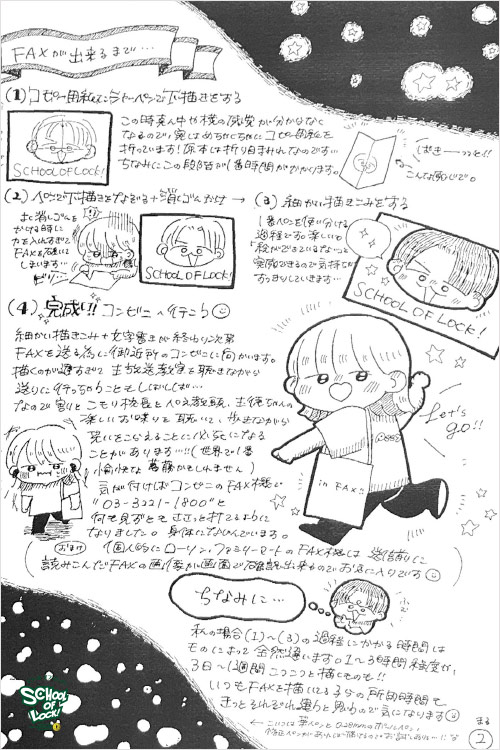 FAXが出来るまで…
(1)コピー用紙にシャーペンで下描きをする
この時真ん中や横の感覚が分からなく
なるので実はめちゃくちゃにコピー用紙を
折っています!原本は折り目まみれなのです…
ちなみにこの段階が1番時間がかかります。
SCHOOL OF LOCK!
こんな感じで。
(2)ペンで下描きをなぞる+消しゴムかけ→
お消しゴムを
かける時に
力を入れすぎて
FAXを破いて
しまいます…
ビリッ…
SCHOOL OF LOCK!
(3)細かい描きこみをする
1番ペンを使い分ける
過程です。楽しい。
絵ができているな〜って
実感できるので気持ちが
すっきりしていきます。
SCHOOL OF LOCK!
(4)完成!!コンビニへ行こう
細かい描きこみ+文字書きが終わり次第
FAXを送る為に御近所のコンビニに向かいます。
描くのが遅すぎて生放送教室を聴きながら
送りに行っちゃうこともしばしば…
なので割とこもり校長とぺえ教頭、生徒ちゃんの
楽しいお喋りを聴いて、歩きながら
笑いをこらえることに必死になる
ことがあります…!!(世界で1番
愉快な葛藤かもしれません)
気が付けばコンビニのFAX機で
"03-3221-1800"と
何も見ずともささっと打てるように
なりました。身体になじんでいます。
Let's
go!!
in FAX!!
おまけ
個人的にローソン、ファミリーマートのFAX機は送信前に
読みこんだFAXの画像が画面で確認出来るのでお気に入りです
ちなみに…
私の場合(1)〜(3)の過程にかかる時間は
ものによって全然違います。1〜3時間程度か、
3日〜1週間こつこつと描くものも!!
いつもFAXを描いてる子の所用時間も
きっとそれぞれ違うと思うので気になります
SCHOOL
OF
LOCK!
まる
2